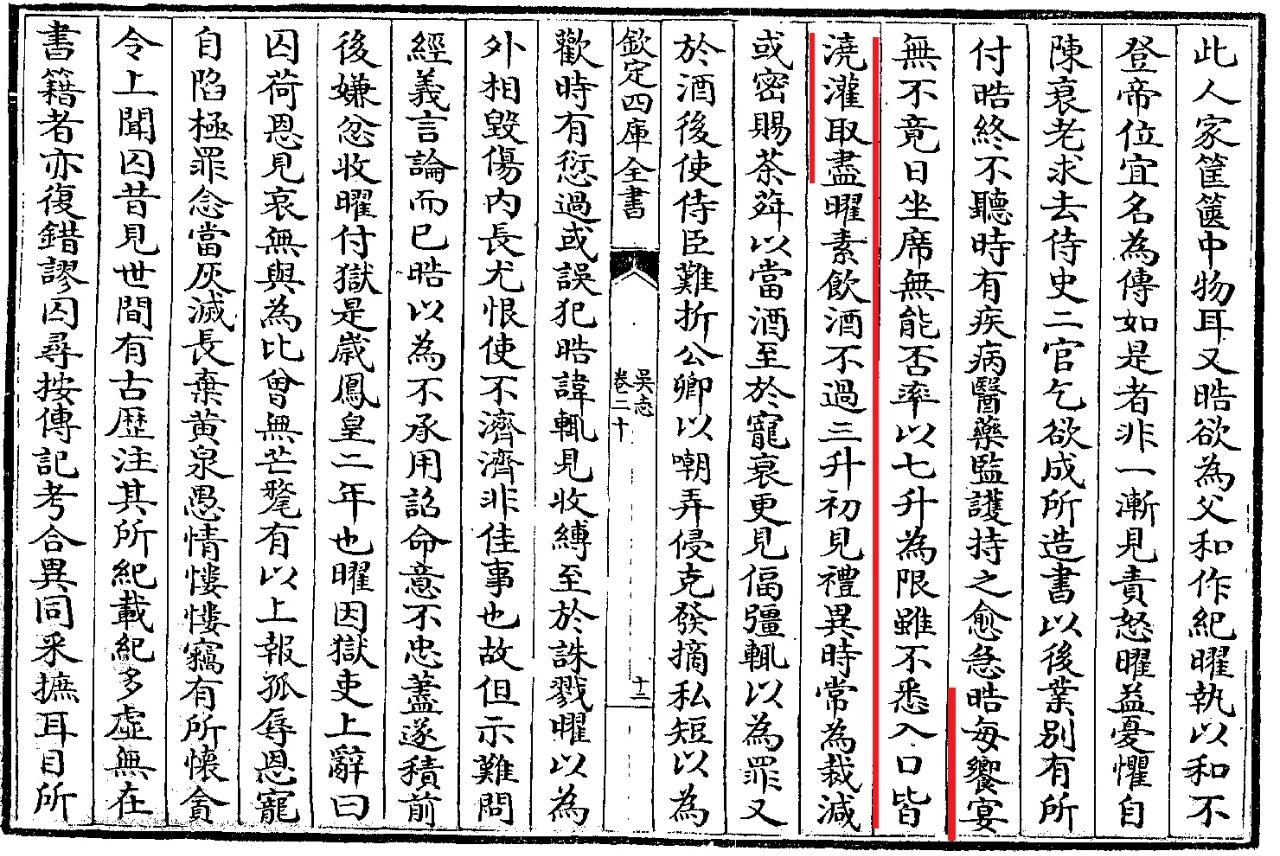 此人家筐篋中物耳又晧欲為父和作紀曜執以和不
登帝位宜名為傳如是者非一漸見責怒曜益憂懼自
陳衰老求去侍史二官乞欲成所造書以後業别有所
付晧終不聽時有疾病醫藥監護持之愈急晧每饗宴
無不竟日坐席無能否率以七升為限雖不悉入口皆
澆灌取盡曜素飲酒不過三升初見禮異時常為裁減
或密賜茶荈以當酒至於寵衰更見偪彊輒以為罪又
於酒後使侍臣難折公卿以嘲弄侵克發摘私短以為
欽定四庫全書
吳志
卷二十
十二
歡時有愆過或誤犯晧諱輒見收縛至於誅戮曜以為
外相毀傷内長尤恨使不濟濟非佳事也故但示難問
經義言論而已晧以為不承用詔命意不忠蓋遂積前
後嫌忿收曜付獄是歲鳳皇二年也曜因獄吏上辭曰
囚荷恩見哀無與為比曾無芒氂有以上報孤辱恩寵
自陷極罪念當灰滅長棄黄泉愚情慺慺竊有所懷貪
令上聞囚昔見世間有古歴注其所紀載紀多虛無在
書籍者亦復錯謬囚尋按傳記考合異同采摭耳目所